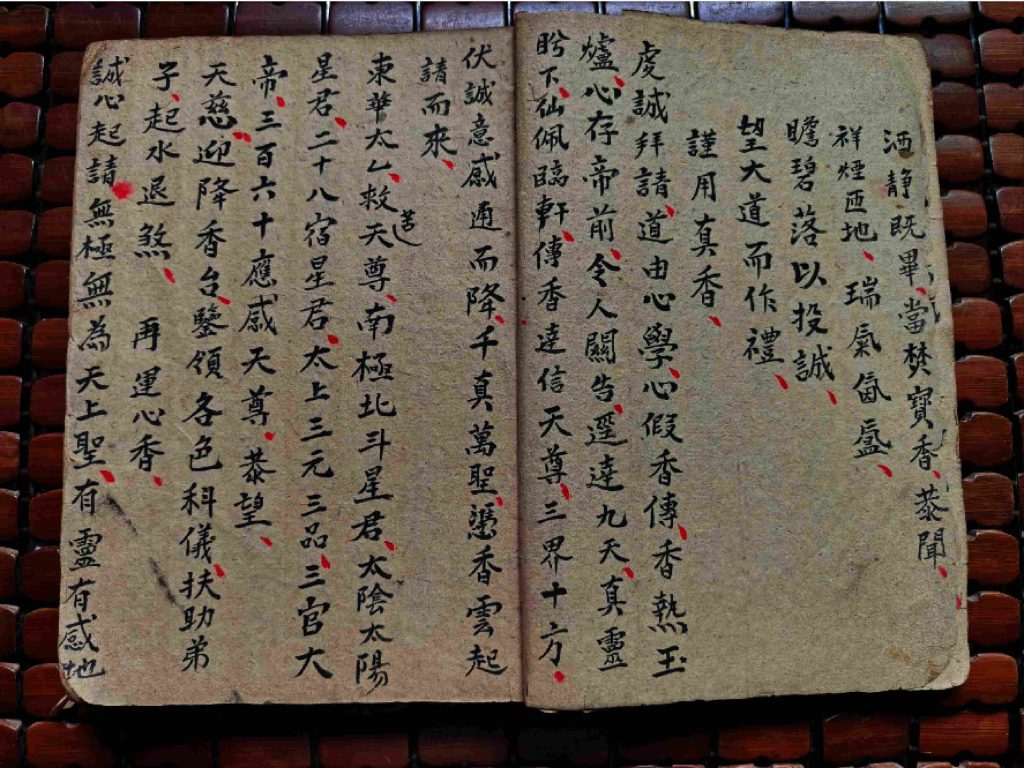 洒静既畢、當焚寶香、恭聞、
祥煙匝地、瑞氣氤氳、
瞻碧落以投誠、
望大道而作禮、
謹用真香、
虔誠拜請、道由心學、心假香傳、香热玉
爐、心存帝前、令人關告、逕達九天、真靈
盻下、仙佩臨軒、傳香達信天尊、三界十方、
伏誠意感通而降、千真萬聖、憑香雲起
請而來、
東華太乙、救苦天尊、南極北斗星君、太陰太陽
星君、二十八宿星君、太上三元三品、三官大
帝、三百六十應感天尊、恭望、
天慈、迎降香台、鑒領各色科儀、扶助弟
子、起水退煞、再運心香、
誠心起請、無極無為天上聖、有靈有感地